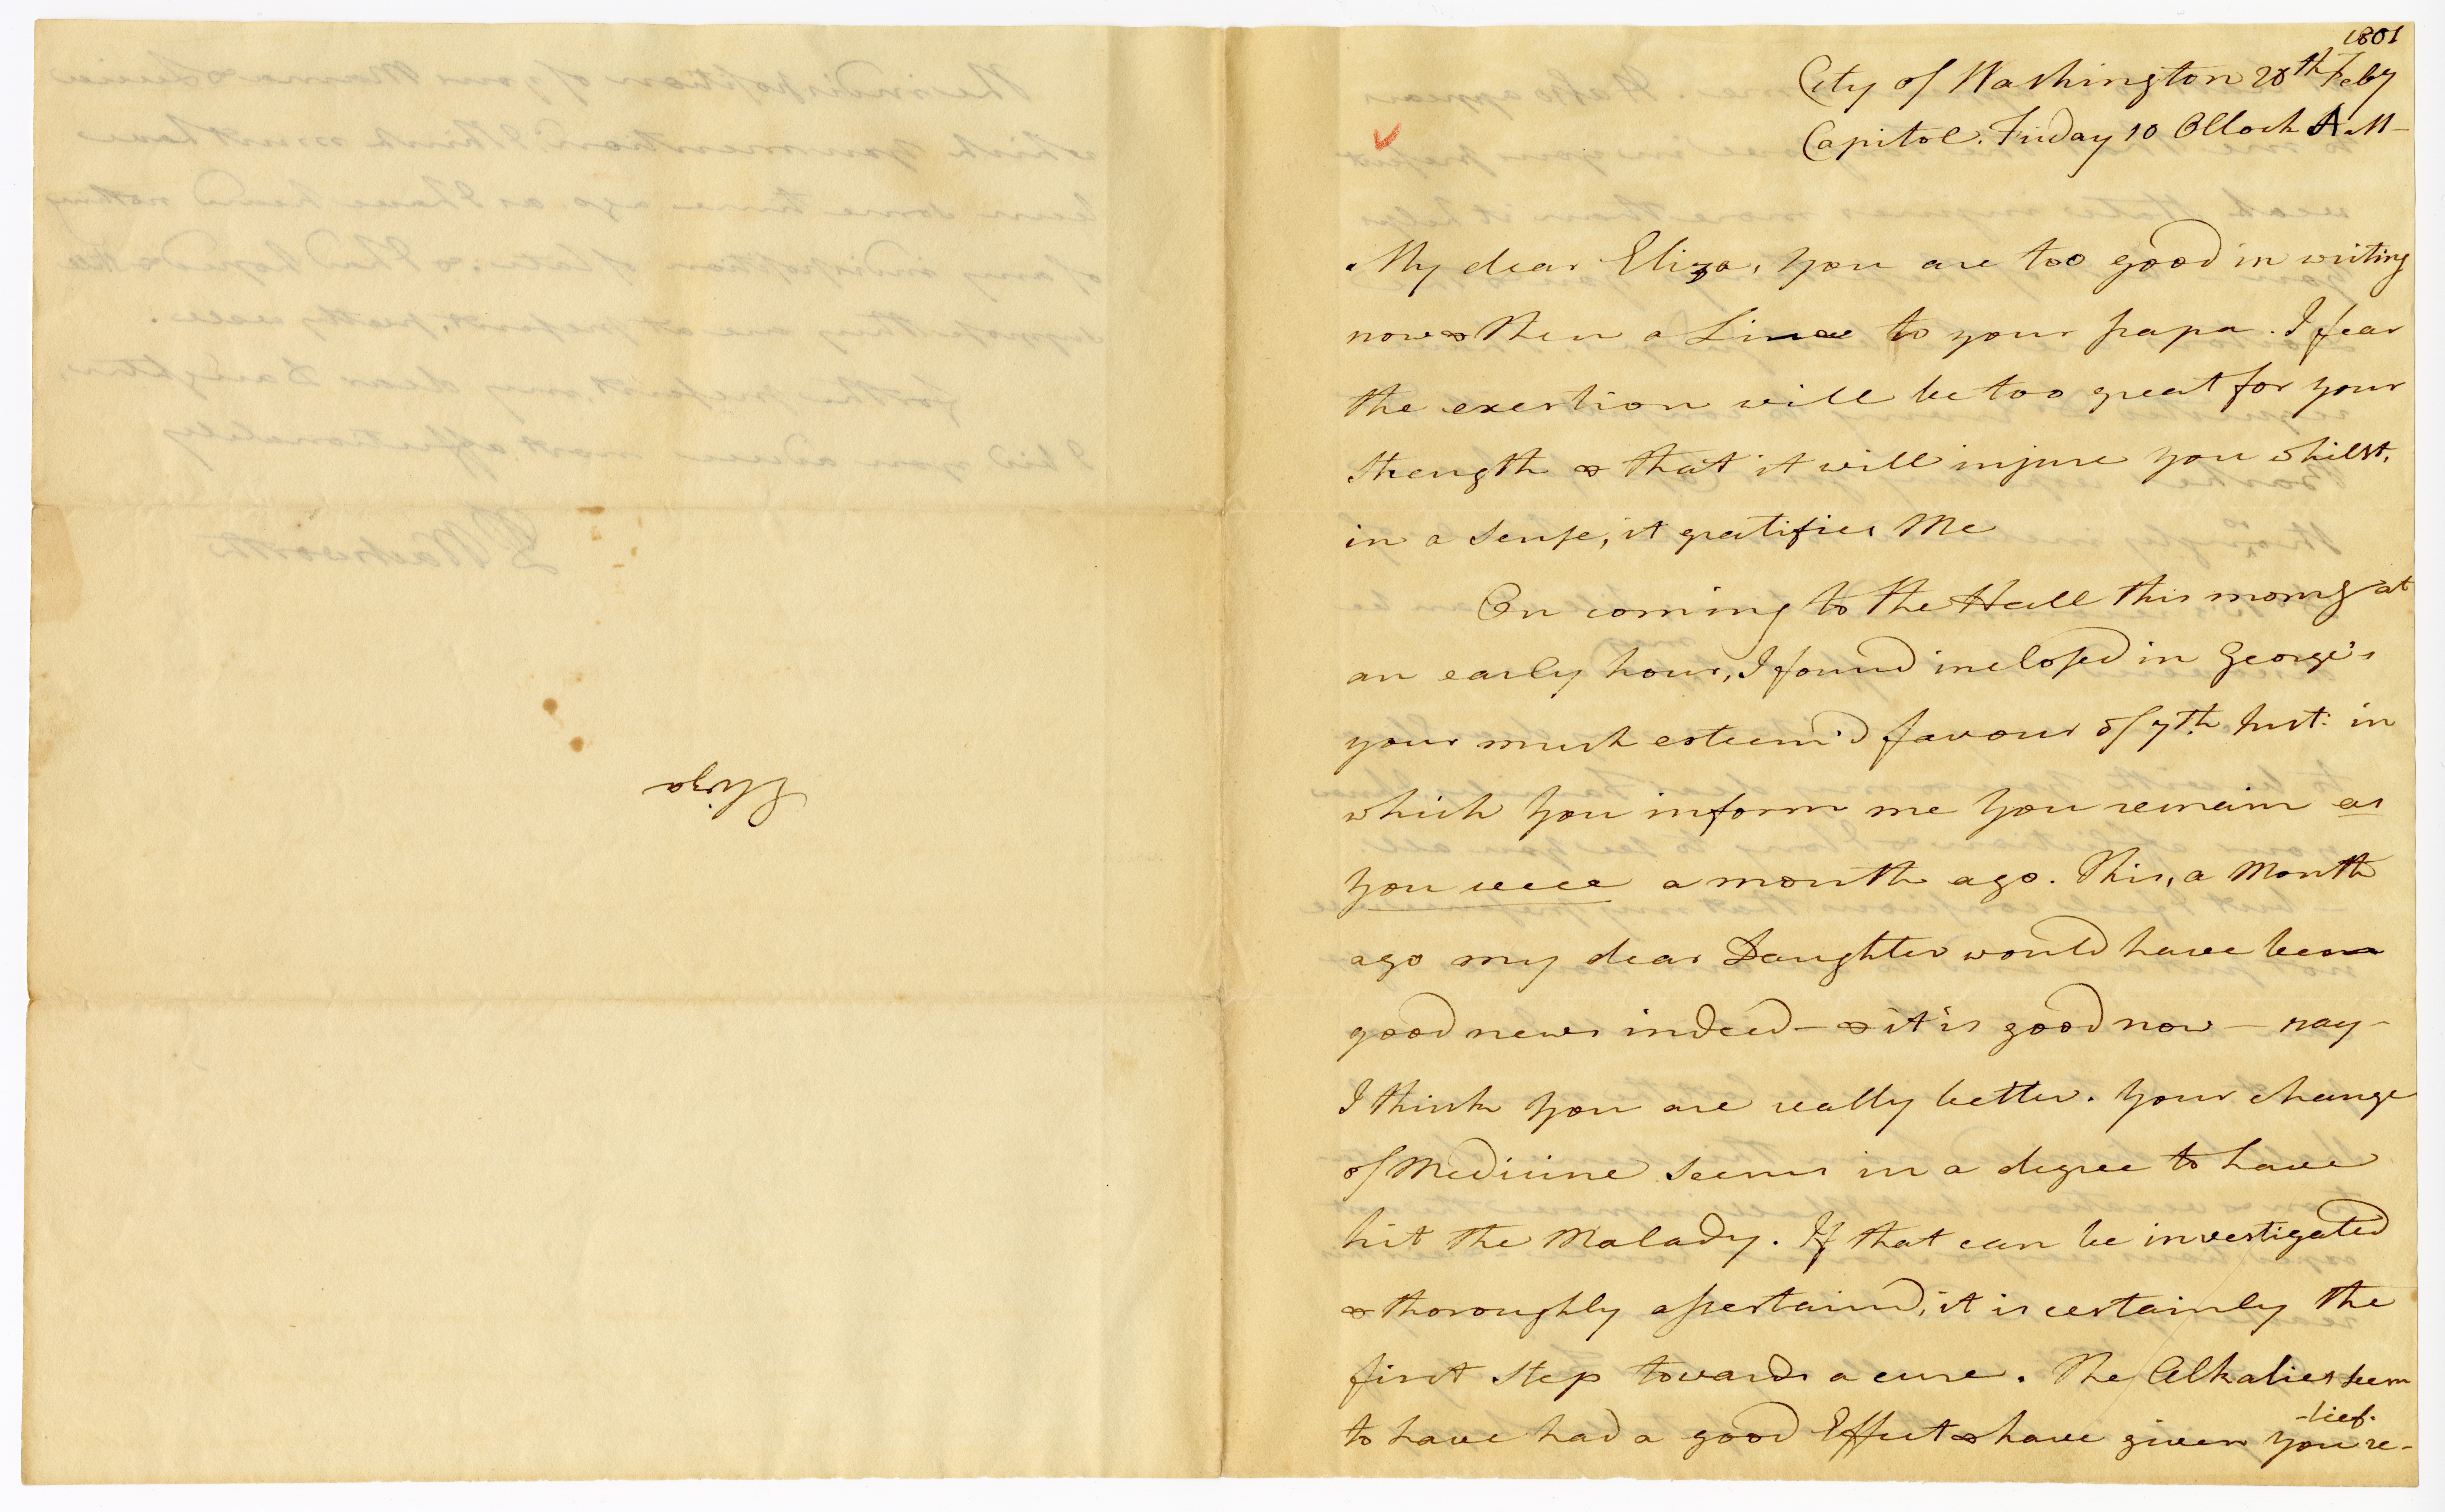 Eliza
1801
City of Washington 20th Feby
Capitol. Friday 10 OClock A.M-
My dear Eliza, you are too good in writing
now & then a Line to your papa. I fear
the exertion will be too great for your
strength & that it will injure you whilst,
in a sense, it gratifies Me
On coming to the Hall this morng at
an early hour, I found inclosed in George's
your much esteem'd favour of 7th Inst: in
which you inform me you remain as
you were a month ago. This, a Month
ago my dear Daughter would have been
good news indeed - & it is good now - nay-
I think you are really better. Your change
of Medicine seems in a degree to have
hit the Malady. If that can be investigated
& thoroughly assertaind, it is certainly the
first step towards a cure. The Alkalies seem
to have had a good Effect & have given you re-
-lief.